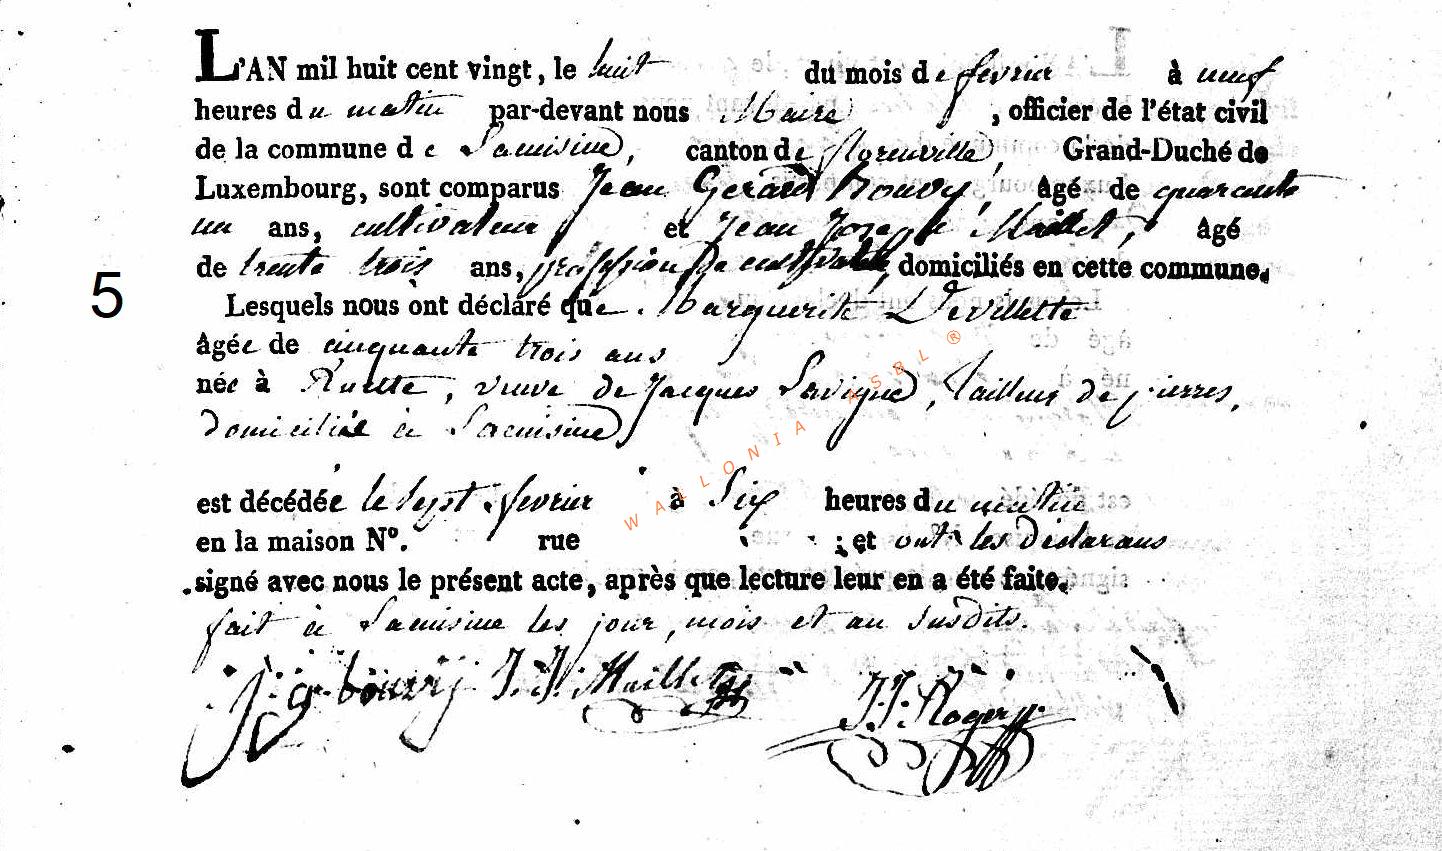 L'AN mil huit cent vingt, le huit du mois de fevrier à neuf
heures du matin par-devant nous Maire, officier de l'état civil
de la commune de Lacuisine, canton de florenville, Grand-Duché de
Luxembourg, sont comparus Jean Gerard bouvy, âgé de quarante
un ans, cultivateur et Jean Joseph Maillet, âgé
de trente trois ans, profession de cultivateur, domiciliés en cette commune.
5
Lesquels nous ont déclaré que Marguerite Devillette
âgée de cinquante trois ans
née à Ruette, veuve de Jacques Lavigne, tailleur de pierres,
domiciliée à Lacuisine
est décédée le sept fevrier à Six heures du matin
en la maison N°. rue ; et ont les déclarans
signé avec nous le présent acte, après que lecture leur en a été faite.
fait à Lacuisine les jour, mois et an susdits.
J: g. bouvy J. J. Maillet J: J: Roger
WALLONIA ASBL ®